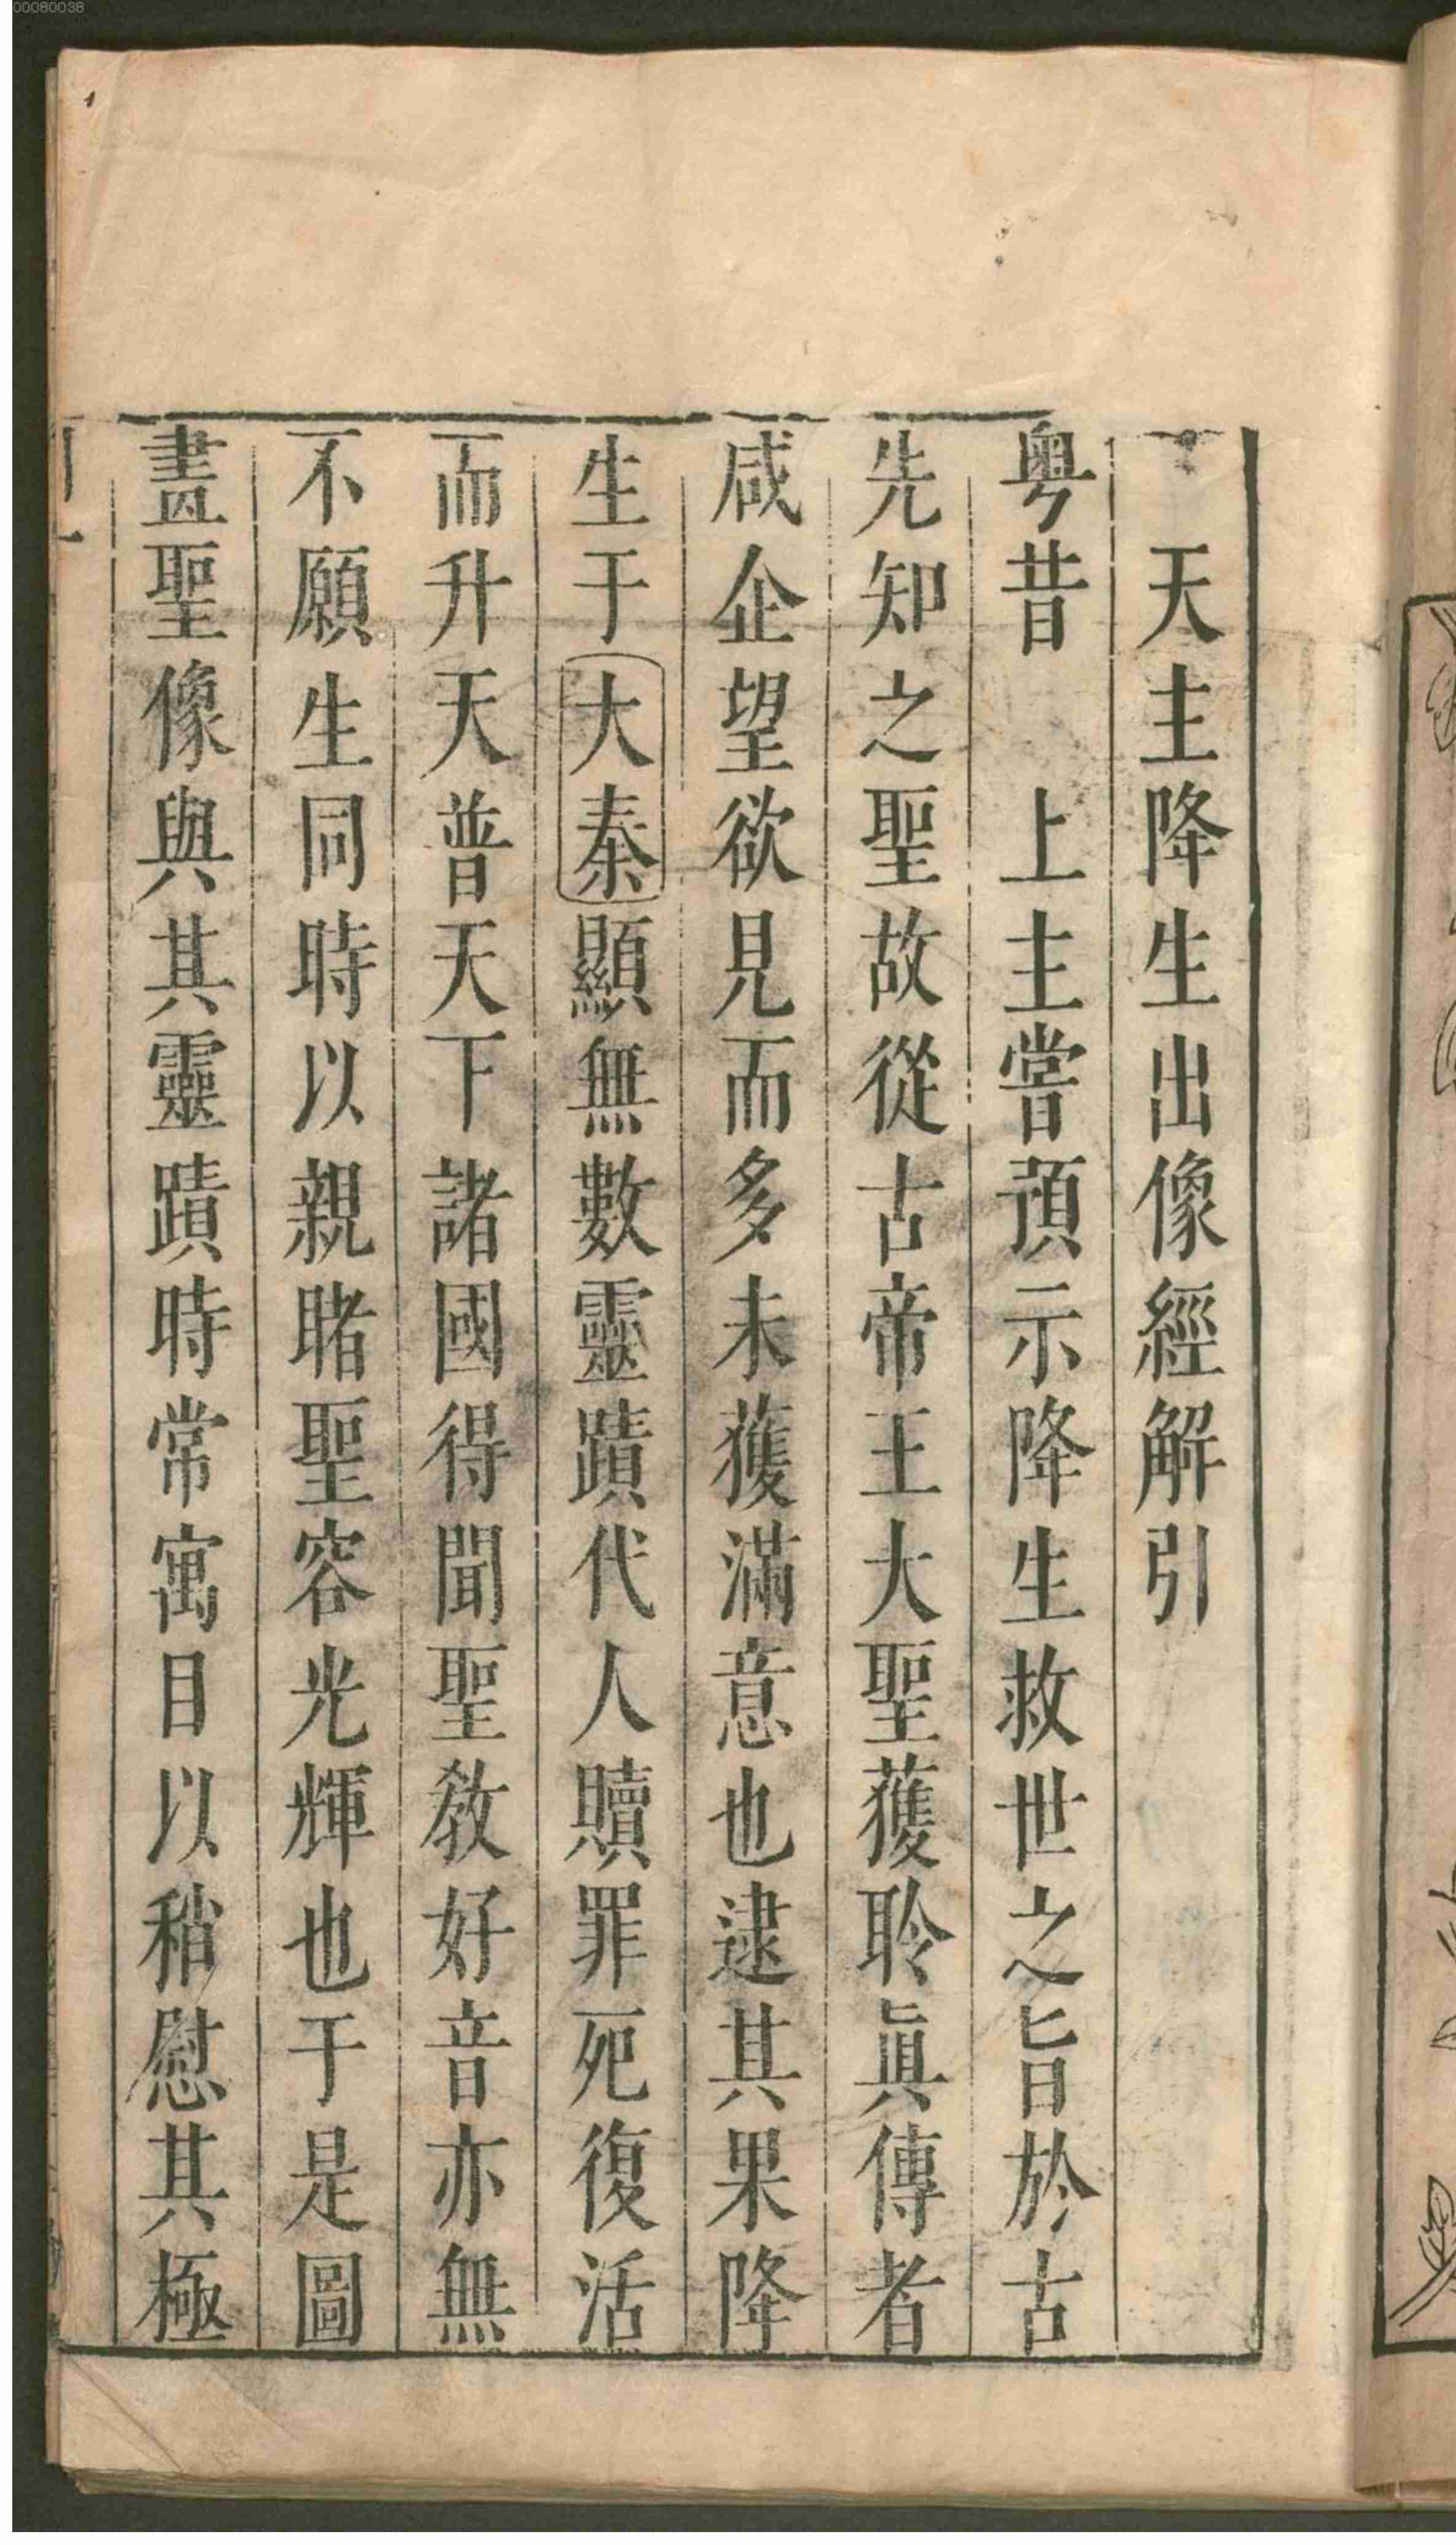 00080038
1
天主降生出像經解引
粤昔　上主嘗預示降生救世之旨於古
先知之聖故從古帝王大聖獲聆眞傳者
咸企望欲見而多未獲滿意也逮其果降
生于大秦顯無數靈蹟代人贖罪死復活
而升天普天下諸國得聞聖敎好音亦無
不願生同時以親睹聖容光輝也于是圖
畫聖像與其靈蹟時常寓目以稍慰其極